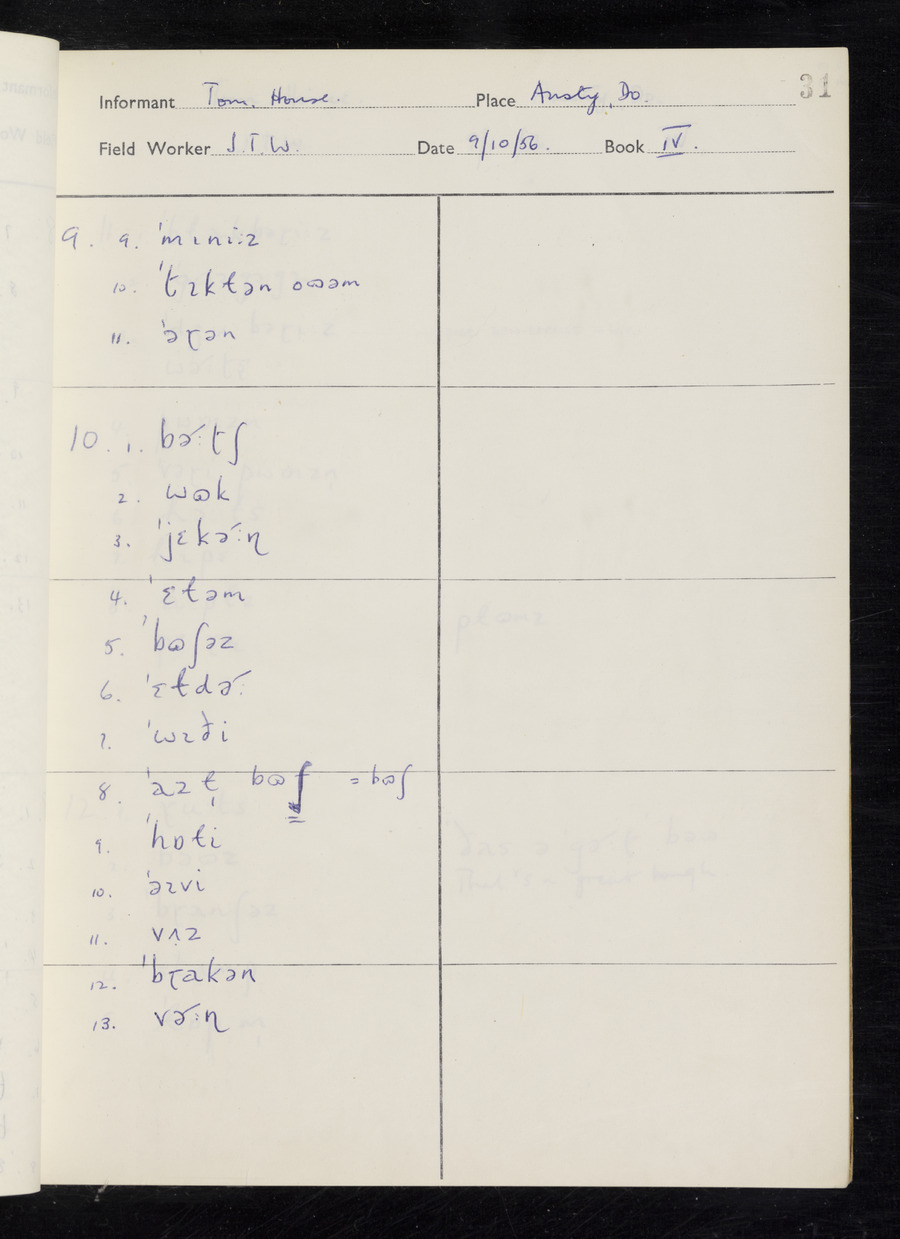 31
Informant Tom. House. Place Ansty, Do.
Field Worker J.T.W. Date 9/10/56. Book IV.
9. 9. ˈmɪniːz
10. ˈtɪktən oʊəm
11. ˈəɽən
10. 1. bɚːtʃ
2. wʊk
3. ˈjɛkɚːɳ
4. ˈɛtəm
5. ˈbʊʃəz
6. ˈɛɫdɚː
7. ˈwɪði
8. bʊʃ = bʊʃ
9. ˈhɒɫi
10. ˈəɪvi
11. vʌz
12. ˈbɽakən
13. vɚːɳ